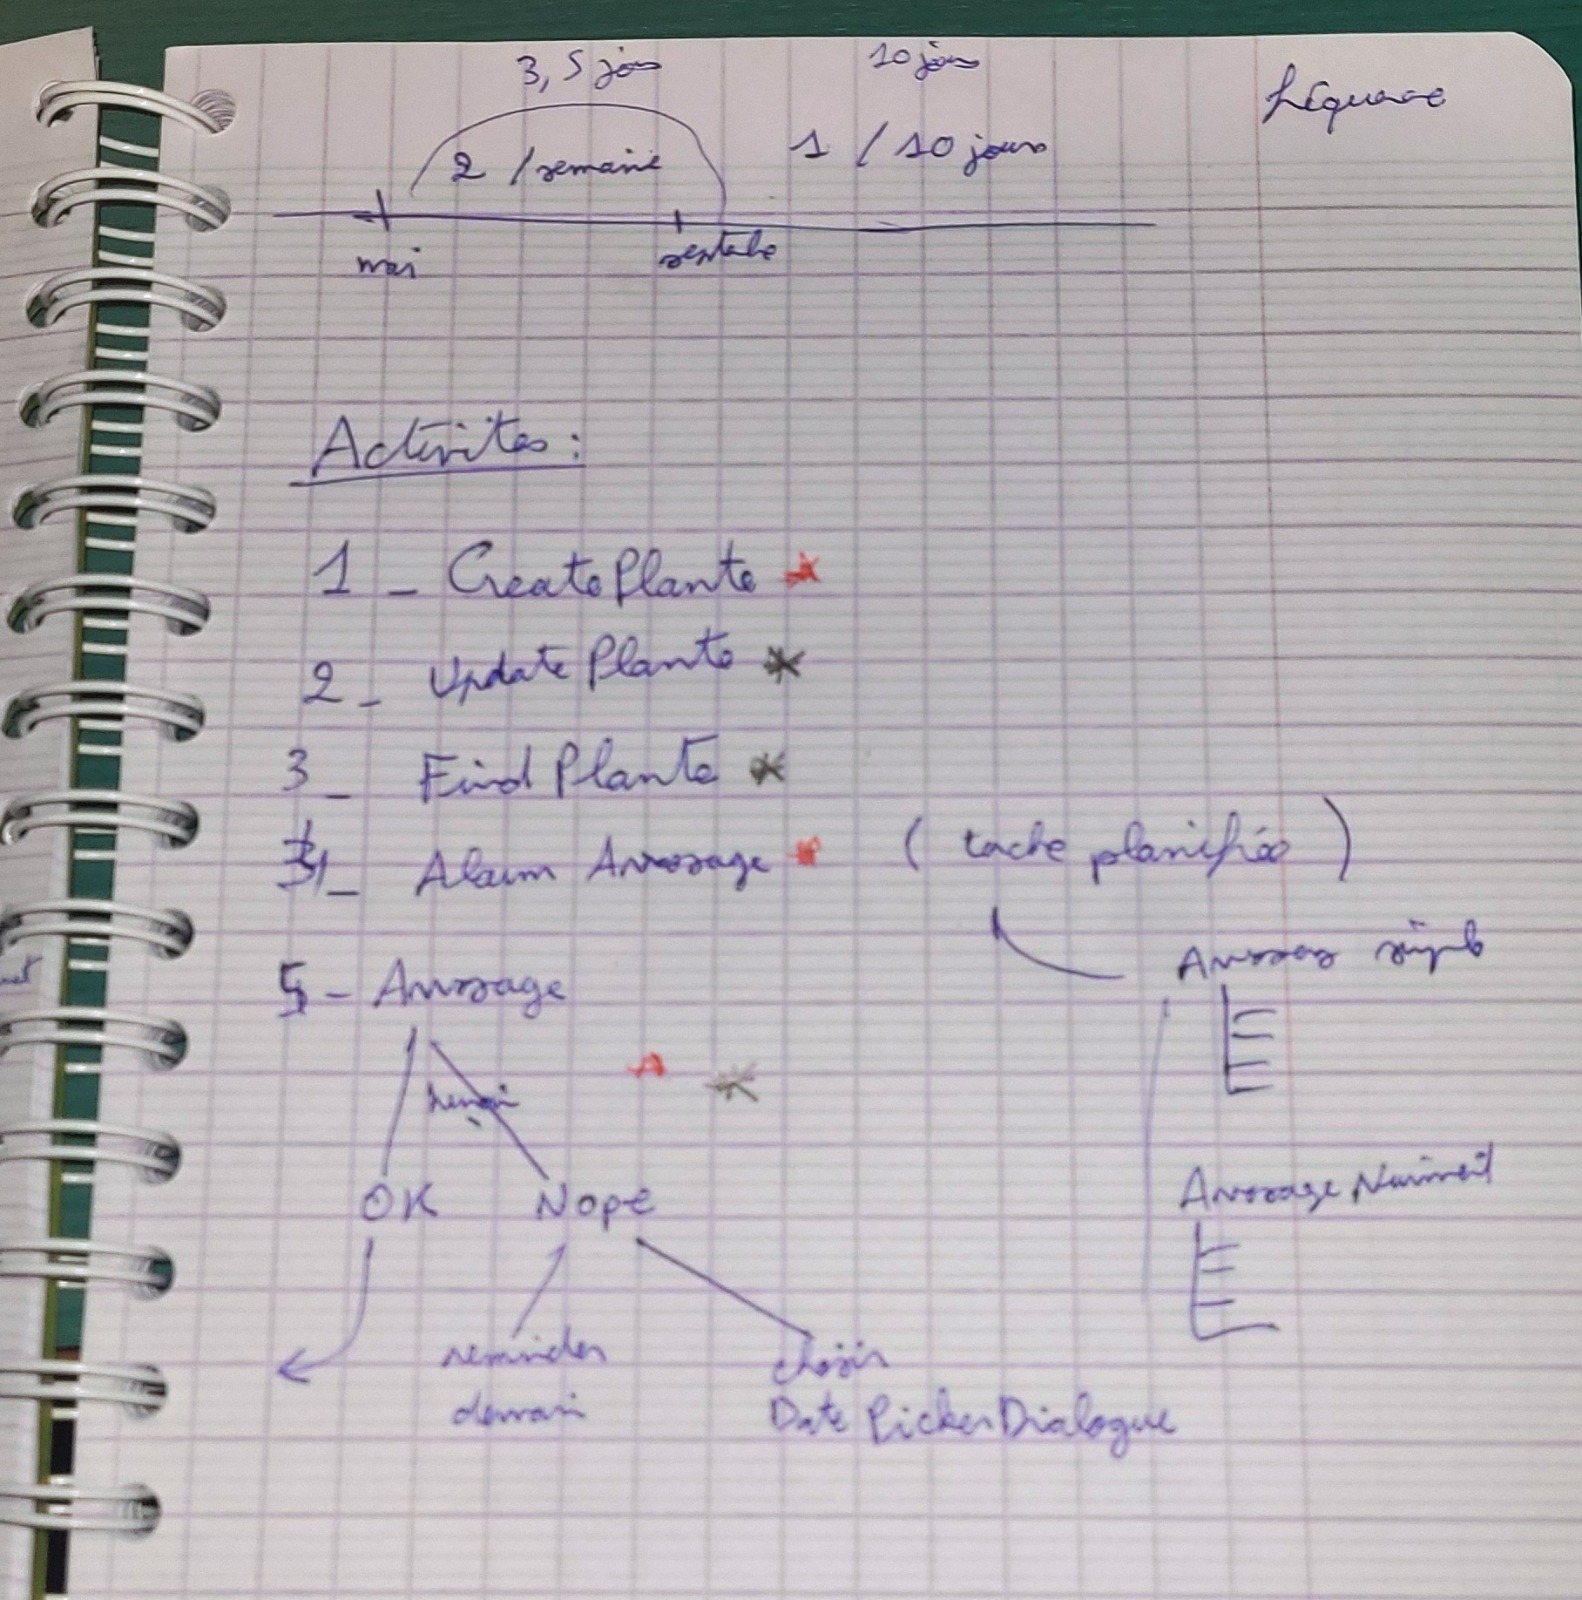 3,5 jours
10 jours
fréquence
2 / semaine
1 / 10 jours
mai
septembre
Activites :
1 - Create Plante
2 - Update Plante
3 - Find Plante
4 - Alarm Arrosage (tache planifiée)
Arrosage simple
5 - Arrosage
OK
Nope
Arrosage Nutriment
reminder
demain
choisir
Date Picker Dialogue